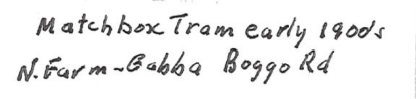 Matchbox Tram early 1900's
N. Farm-Gabba Boggo Rd